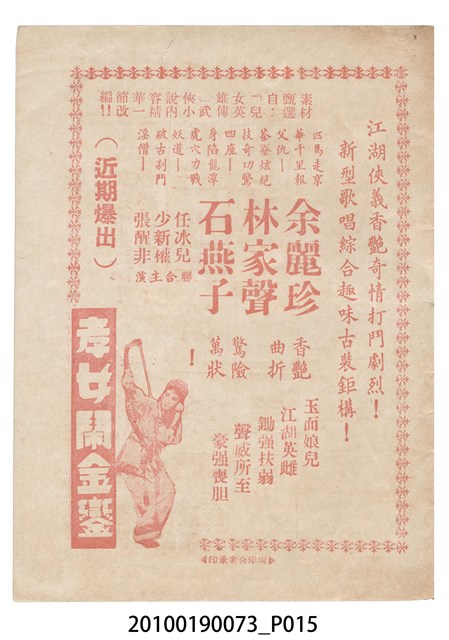 江湖俠義香艷奇情打鬥劇烈！
新型歌唱綜合趣味古裝鉅構！
素材
甄選
自：
「兒
女英
雄傳
」武
俠小
說內
容精
華一
節改
編！！
匹馬走京
華千里報
父仇─
茶寮炫絕
技奇功驚
四座─
身陷龍潭
虎穴力戰
妖道─
破古刹鬥
淫僧─
余麗珍
林家聲
石燕子
任冰兒
少新權
張醒非
聯合主演
（近期爆出）
香艷
曲折
驚險
萬狀
！
玉面娘兒
江湖英雌
鋤强扶弱
聲威所至
豪强喪胆
孝女鬧金鑾
20100190073_P015